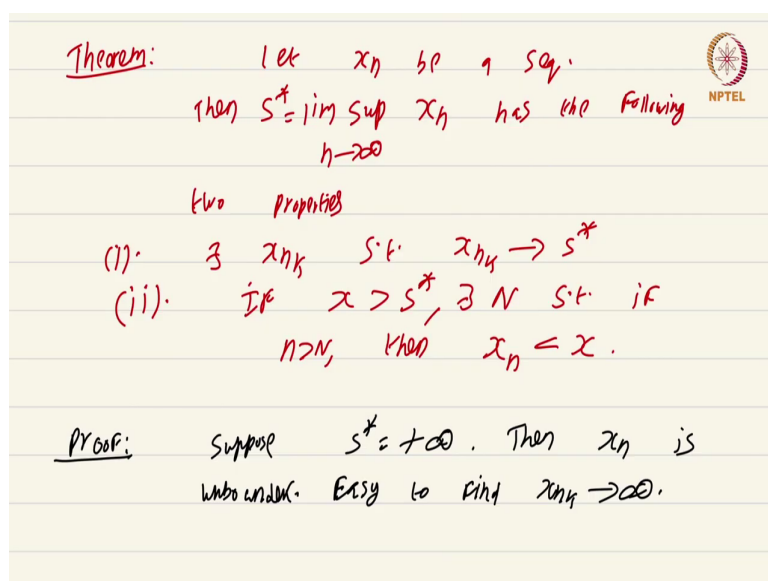 Theorem: Let xₙ be a seq.
NPTEL
Then S* = lim sup xₙ has the following
n→∞
two properties
(i). ∃ xₙₖ s.t. xₙₖ → s*
(ii). If x > s*, ∃ N s.t. if
n>N, then xₙ < x.
Proof: Suppose s* = +∞. Then xₙ is
unbounded. Easy to find xₙₖ → ∞.